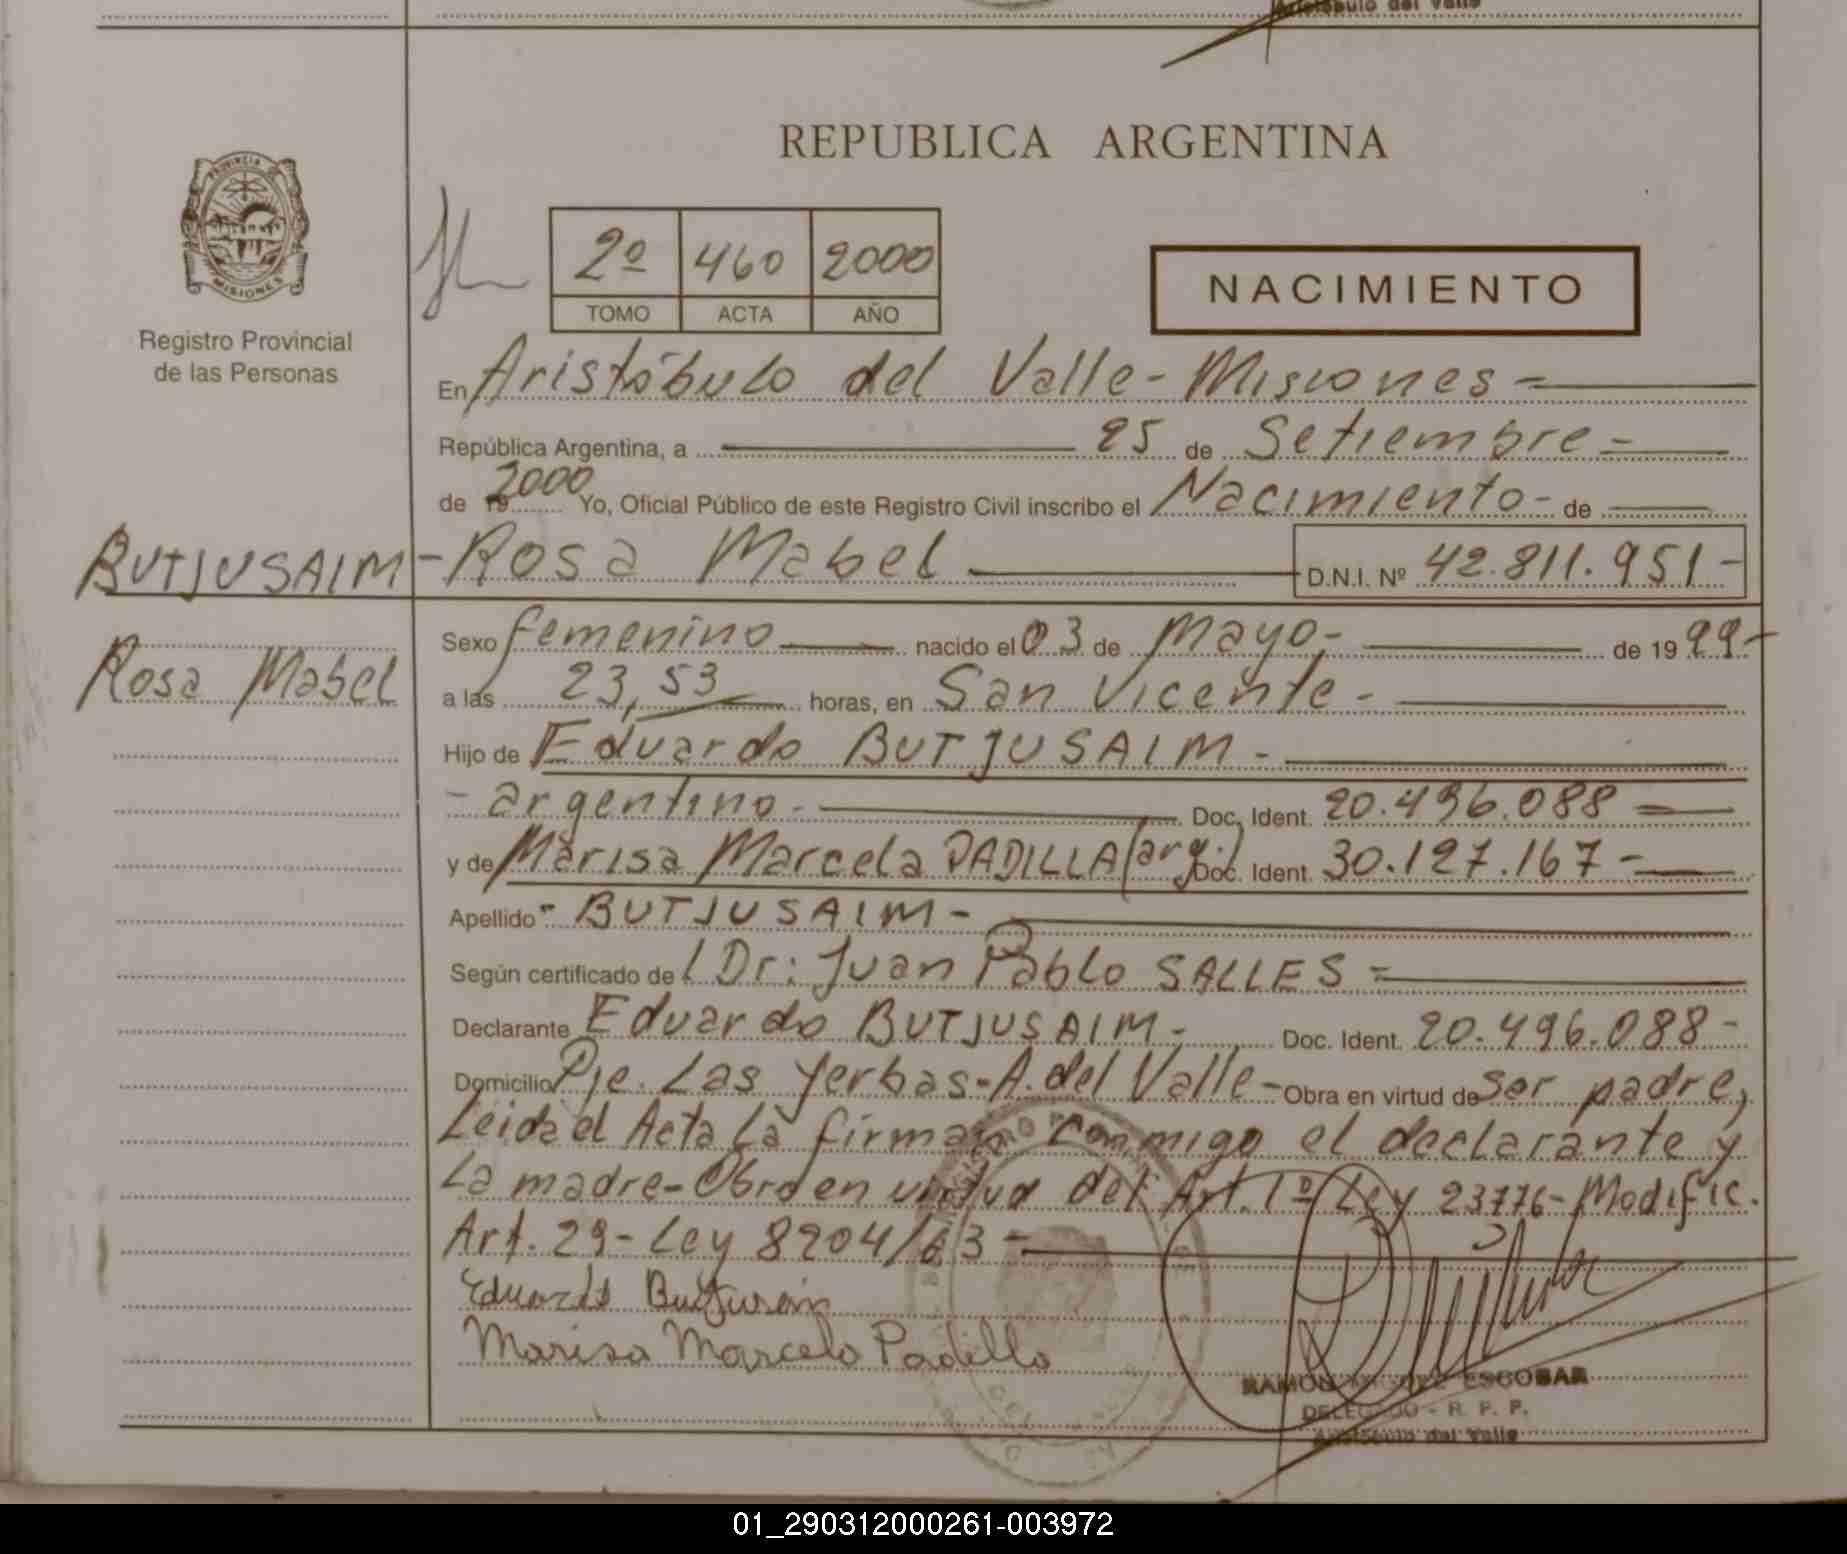 Aristóbulo del Valle
REPUBLICA ARGENTINA
PROVINCIA DE
MISIONES
Registro Provincial
de las Personas
2º 460 2000
TOMO ACTA AÑO
NACIMIENTO
En Aristóbulo del Valle - Misiones =
República Argentina, a 25 de Setiembre =
de 19 2000 Yo, Oficial Público de este Registro Civil inscribo el Nacimiento - de
BUTJUSAIM - Rosa Mabel D.N.I. Nº 42.811.951 -
Rosa Mabel
Sexo femenino nacido el 03 de Mayo - de 19 99 -
a las 23,53 horas, en San Vicente -
Hijo de Eduardo BUTJUSAIM -
- argentino - Doc. Ident. 20.496.088 =
y de Marisa Marcela PADILLA (arg.) Doc. Ident. 30.127.167 -
Apellido - BUTJUSAIM -
Según certificado de l Dr: Juan Pablo SALLES =
Declarante Eduardo BUTJUSAIM - Doc. Ident. 20.496.088 -
Domicilio Pje. Las Yerbas - A. del Valle - Obra en virtud de ser padre,
Leida el Acta la firman conmigo el declarante y
la madre - Obro en virtud del Art. 1º Ley 23776 - Modific.
Art. 29 - Ley 8204/63 -
Eduardo
Marisa Marcela Padilla
RAMON MIGUEL ESCOBAR
DELEGADO - R. P. P.
Aristóbulo del Valle
01_290312000261-003972